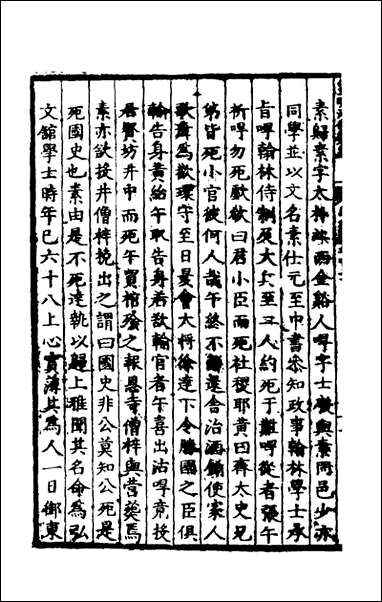 素歸素字太樸江西金谿人㝵字士毅與素同邑少亦
同學並以文名素仕元至中書叅知政事翰林學士承
旨㝵翰林侍制及大兵至二人約死于難㝵從者張午
祈㝵勿死歔欷曰君小臣而死社稷耶黃曰齊太史兄
弟皆死小官彼何人哉午終不 還舍治酒 使家人
歌 爲歡環守至日 會大將徐達下令勝國之臣俱
輸告身黃紿午取告身若欲輸官者午喜出沽㝵竟投
居賢坊井中而死午買棺殮之報恩寺僧梓與營葬焉
素亦欲投井僧梓挽出之謂曰國史非公莫知公死是
死國史也素由是不死達執以歸上雅聞其名命爲弘
文舘學士時年已六十八上心實薄其爲人一日御東